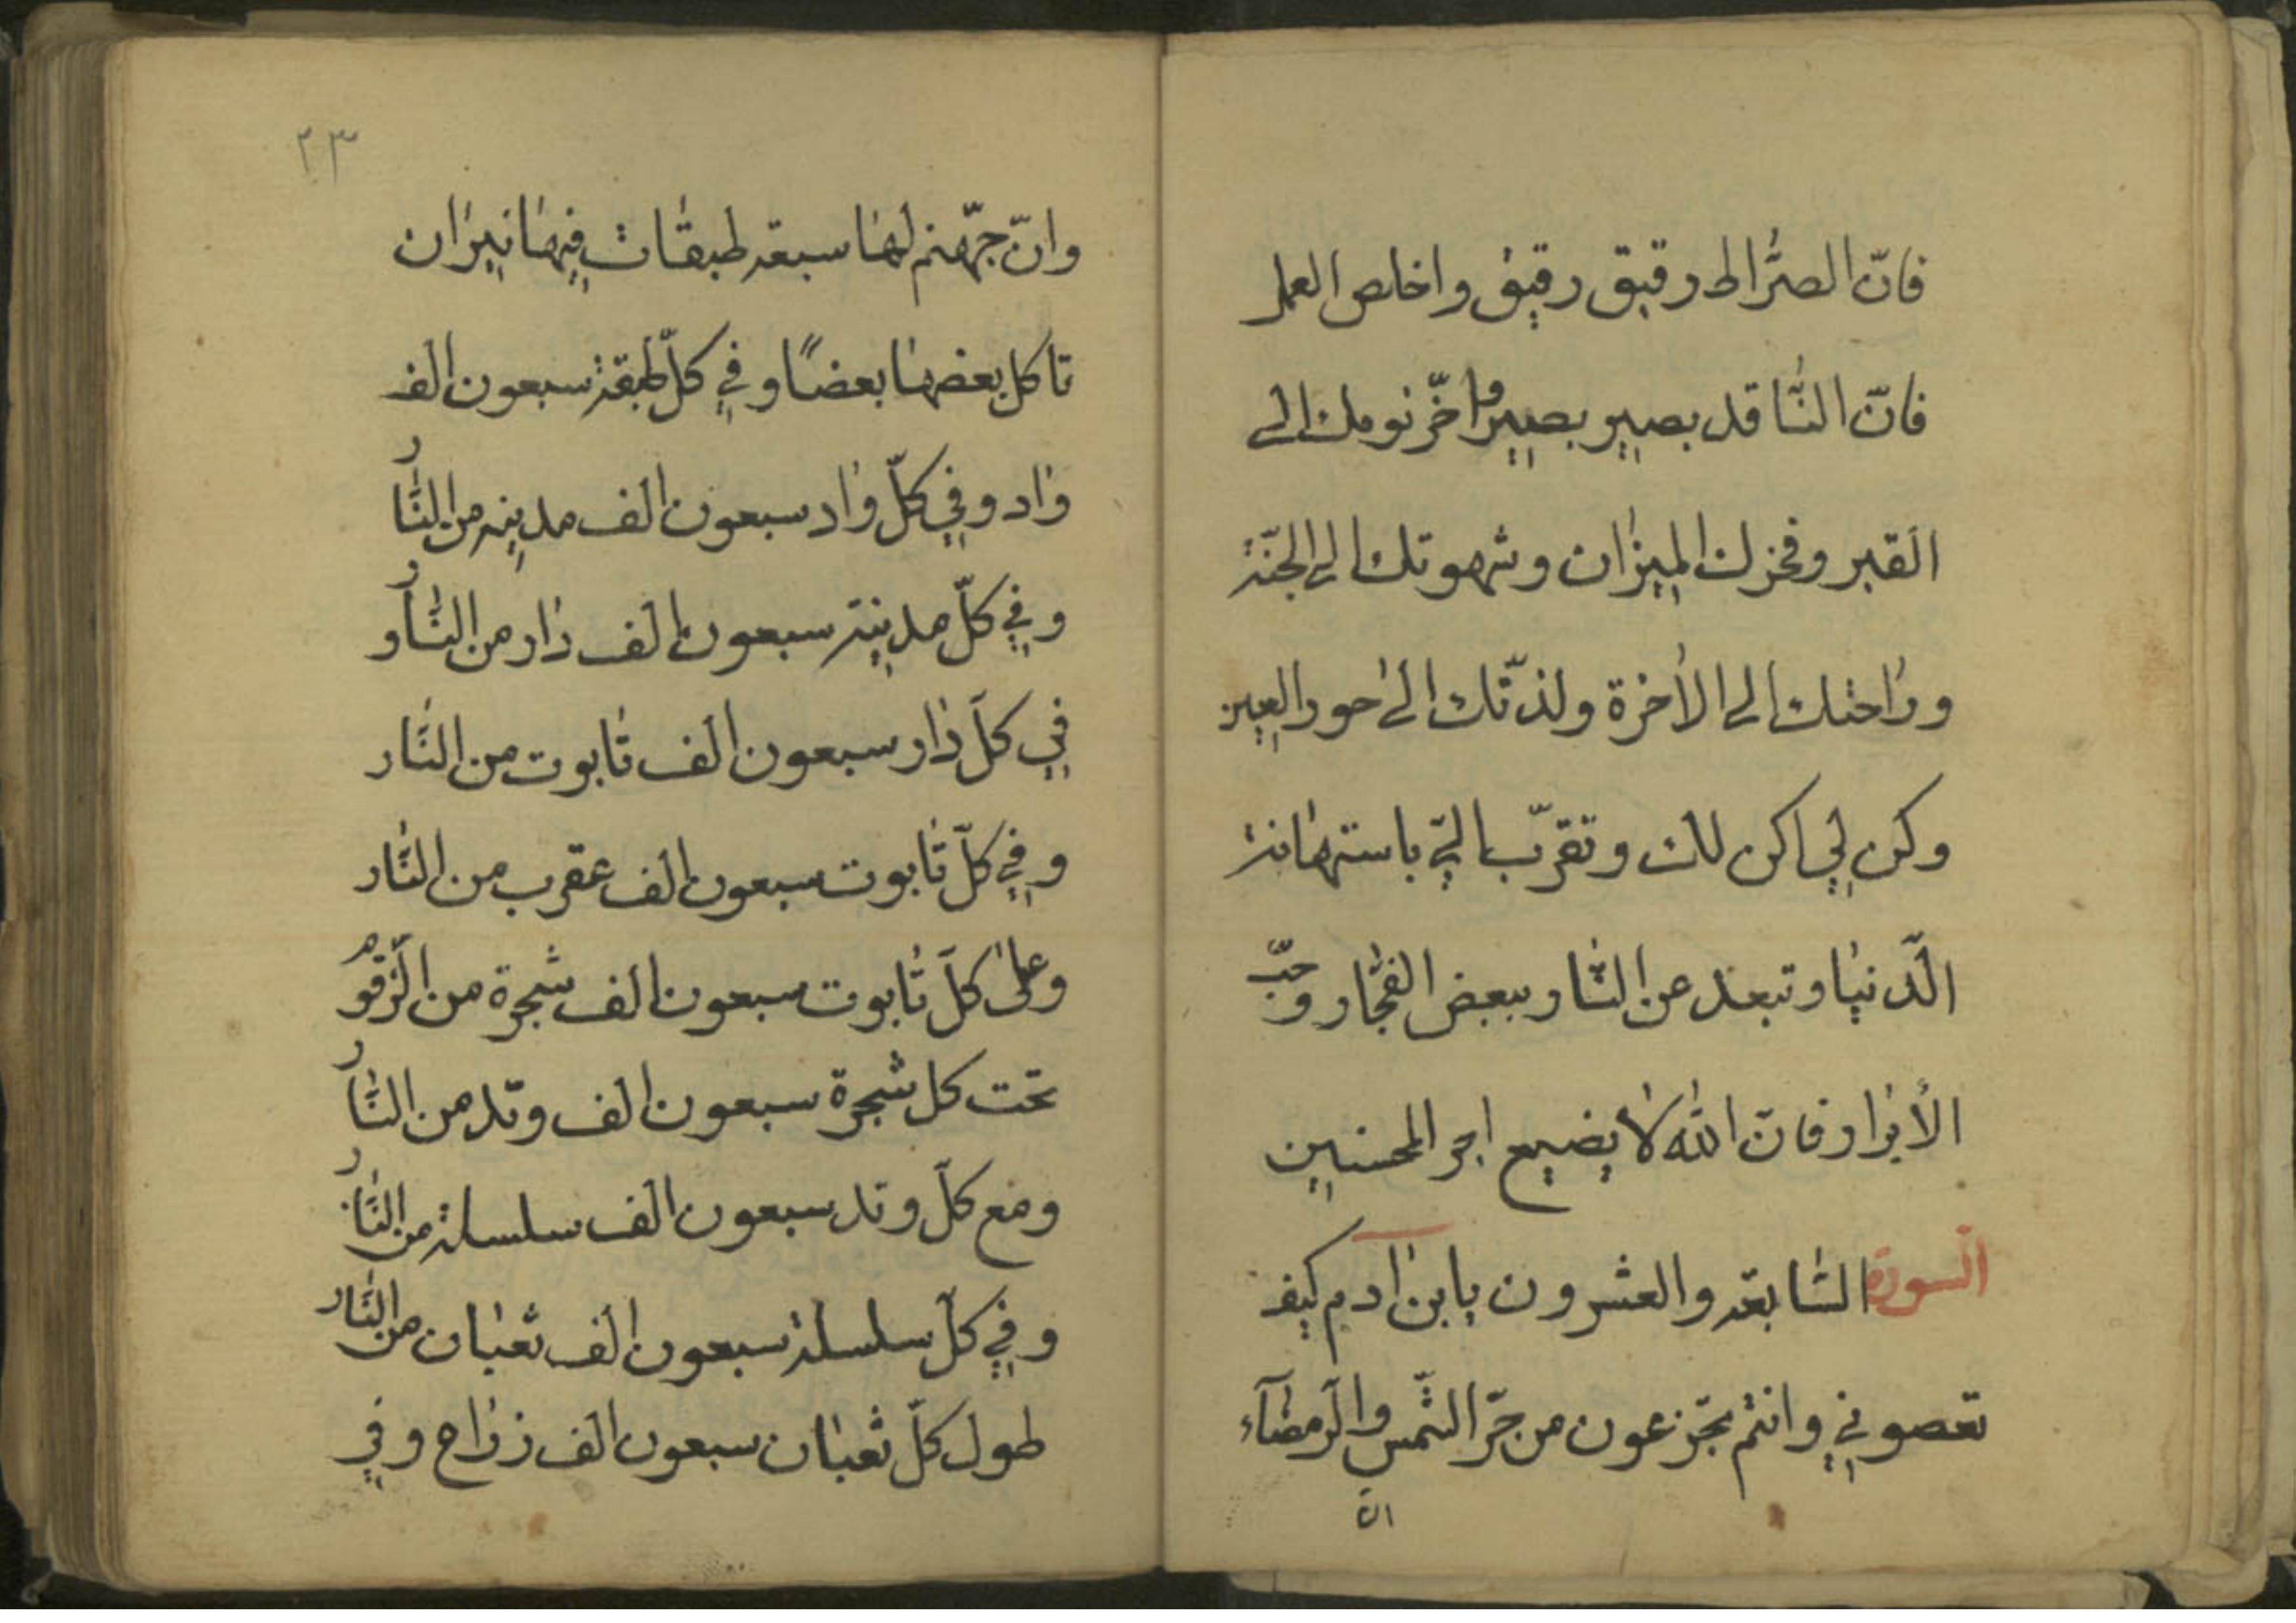 فانّ الصّراط رقيق رقيق واخلص العمل
فانّ النّاقد بصير بصير واخّر نومك الى
القبر وفخرك الميزان وشهوتك الى الجنّة
وراحتك الى الاخرة ولذّتك الى حور العين
وكن لي اكن لك وتقرّب اليّ باستهانة
الدّنيا وتبعد عن النّار ببعض الفجّار وحبّ
الأبرار فانّ اللّه لا يضيع اجر المحسنين
السورة السّابعة والعشرون يا بن آدم كيف
تعصوني وانتم تجزعون من حرّ الشّمس والرّمضآء
وانّ
٢٣
وانّ جهّنم لها سبعة طبقات فيها نيران
تاكل بعضها بعضًا وفي كلّ طبقة سبعون الف
واد وفي كلّ واد سبعون الف مدينة من النّار
وفي كلّ مدينة سبعون الف دار من النّار و
في كلّ دار سبعون الف تابوت من النّار
وفي كلّ تابوت سبعون الف عقرب من النّار
وعلى كلّ تابوت سبعون الف شجرة من الزّقوم
تحت كل شجرة سبعون الف وتد من النّار
ومع كلّ وتد سبعون الف سلسلة من النّار
وفي كلّ سلسلة سبعون الف ثعبان من النّار
طول كلّ ثعبان سبعون الف زراع وفي